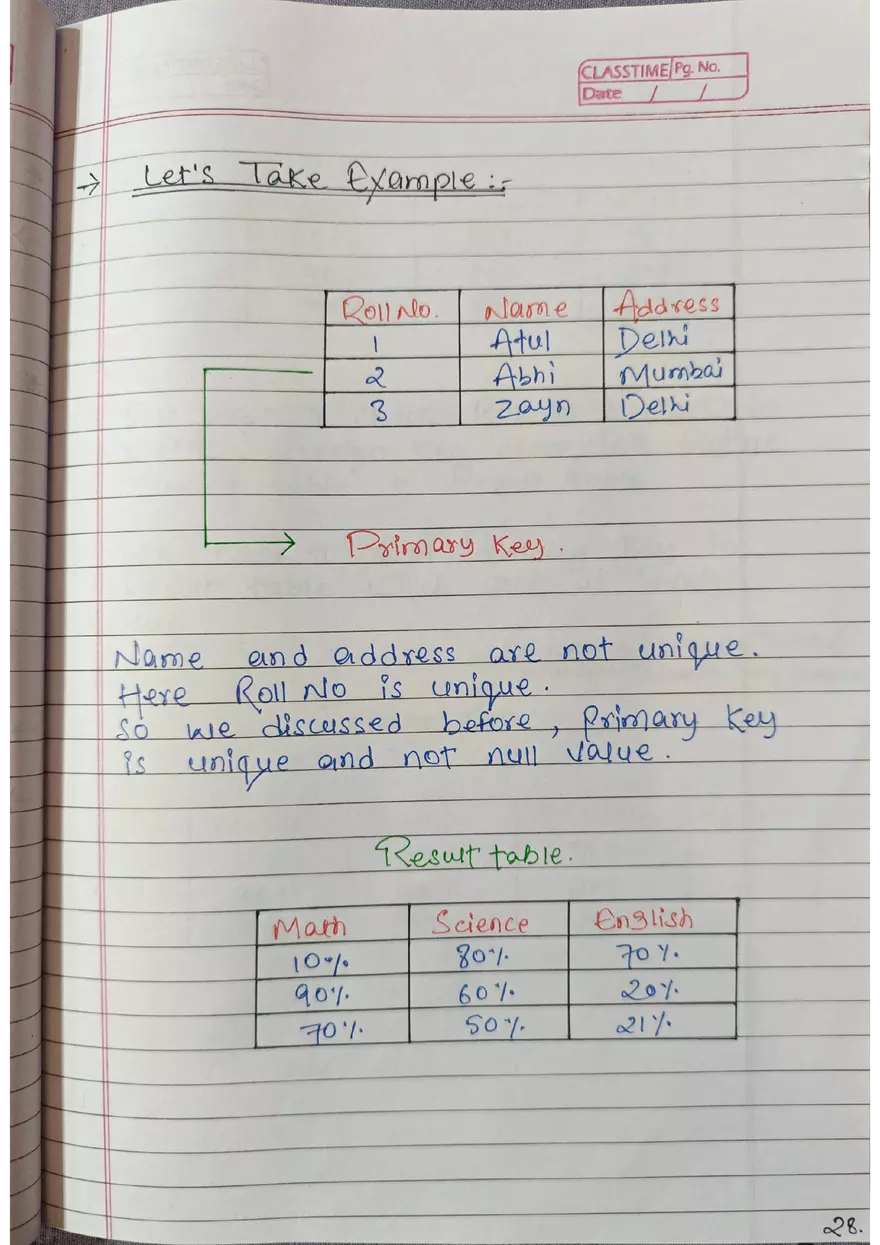 CLASSTIME Pg. No.
Date / /
→ Let's Take Example :-
Roll No. Name Address
1 Atul Delhi
2 Abhi Mumbai
3 Zayn Delhi
Primary Key.
Name and address are not unique.
Here Roll No is unique.
So we discussed before, Primary Key
is unique and not null value.
Result table.
Math Science English
10% 80% 70%
90% 60% 20%
70% 50% 21%
28.